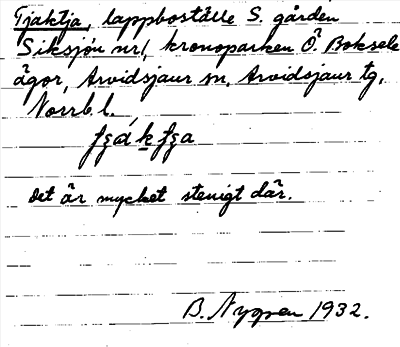 Tjaktja, lappboställe S. gården
Siksjön nr 1, kronoparken Ö. Boksele
ägor, Arvidsjaur sn, Arvidsjaur tg,
Norrb. l.
Det är mycket stenigt där.
B. Nygren 1932.